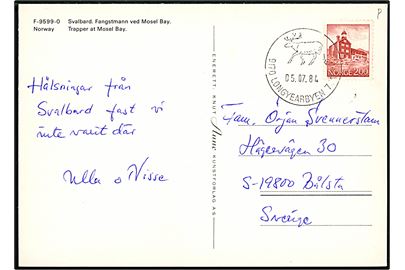 F-9599-0 Svalbard. Fangstmann ved Mosel Bay.
Norway Trapper at Mosel Bay.
Hälsningar från
Svalbard fast vi
inte varit där
Ulla o Nisse
ENERETT: KNUT Aune KUNSTFORLAG AS
9170 LONGYEARBYEN
05.07.84
NORGE 2.00
Fam. Örjan Svennerstam
Hägervägen 30
S-19800 Bålsta
Sverige